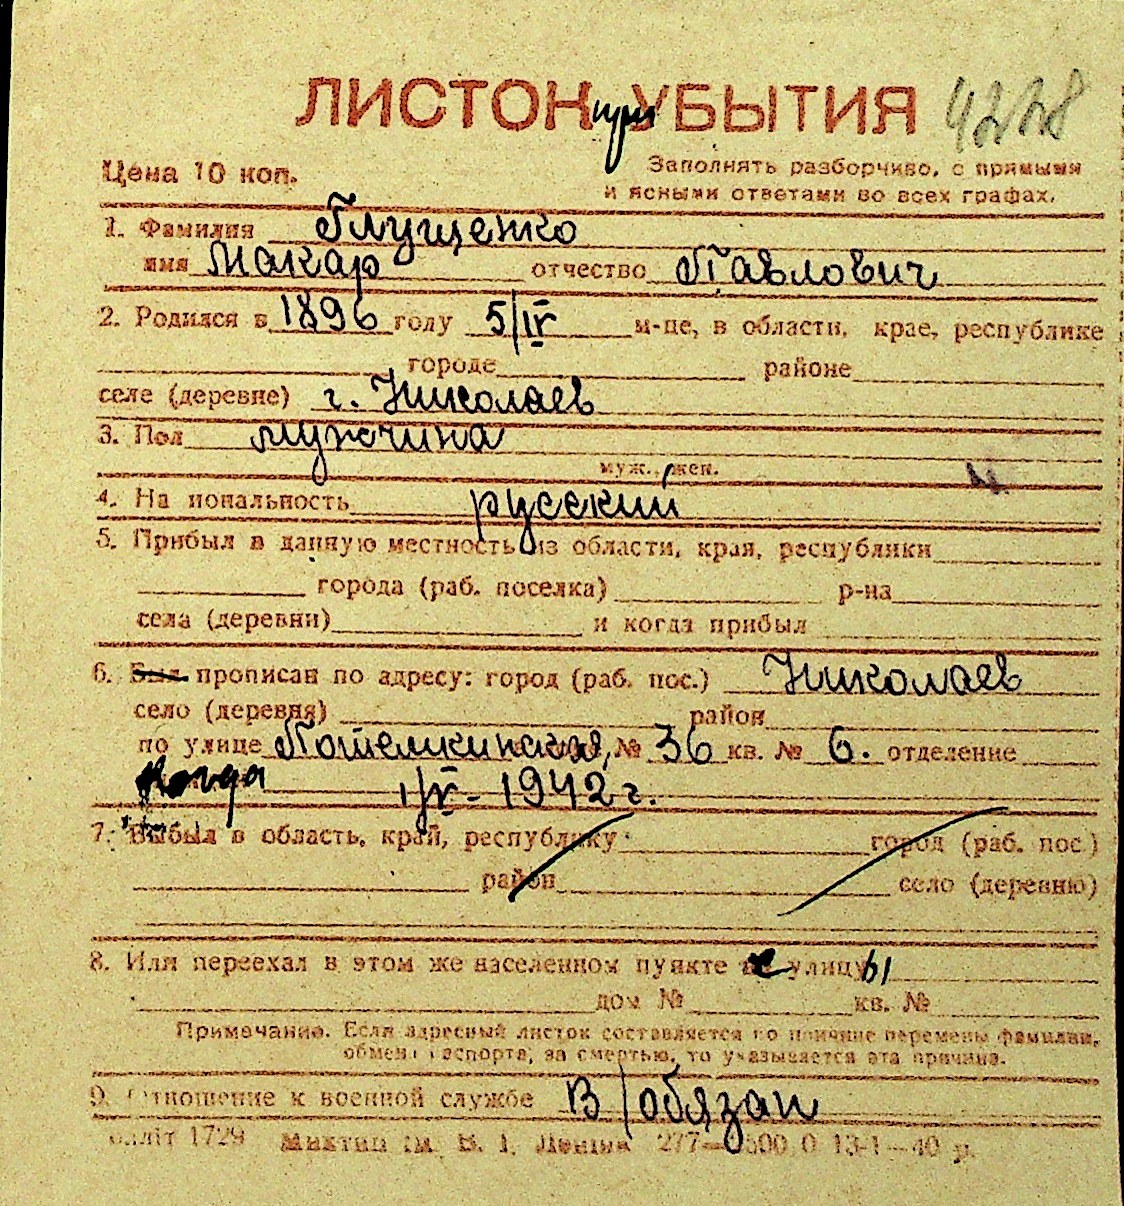 ЛИСТОК при УБЫТИЯ 4228
Цена 10 коп.
Заполнять разборчиво, с прямыми
и ясными ответами во всех графах.
1. Фамилия Глущенко
имя Макар отчество Павлович
2. Родился в 1896 году 5/IV м-це, в области, крае, республике
городе районе
селе (деревне) г. Николаев
3. Пол мужчина
муж., жен.
4. На иональность русский
5. Прибыл в данную местность из области, края, республики
города (раб. поселка) р-на
села (деревни) и когда прибыл
6. Был прописан по адресу: город (раб. пос.) Николаев
село (деревня) район
по улице Потемкинская, № 36 кв. № 6. отделение
Когда 1/IV - 1942 г.
7. Выбыл в область, край, республику город (раб. пос.)
район село (деревню)
8. Или переехал в этом же населенном пункте с улицы
дом № кв. №
Примечание. Если адресный листок составляется по причине перемены фамилии,
обмен паспорта, за смертью, то указывается эта причина.
9. Отношение к военной службе В/обязан
1729 ім. В. І. Леніна 277— 500.0 13-1—40 р.